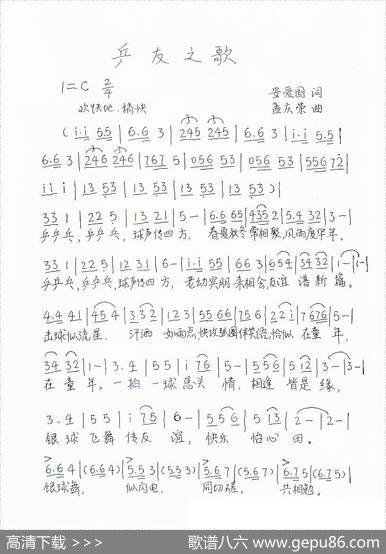 乒友之歌
1=C 2/4
安爱国 词
欢快地 稍快
孟庆荣 曲
( i·i 5.5 | 6.6 3 | 245 245 | 6.6 3 | i·i 5.5 |
6.6 3 | 246 246 | 767 5 | 056 53 | 056 53 | 556 72 |
i i i | 13 53 | 13 53 | 13 53 | 13 53 ) |
33 1 | 22 5 | 13 21 | 5 - | 6.6 65 | 4352 | 5.4 32 | 3 - |
乒乒乓,乒乒乓,球声传四方,春夏秋冬常相聚,风雨度华年。
33 1 | 22 5 | 12 31 | 6 - | i·i 55 | 66 3 | 654 | 34 32 | 1 - | 1 - |
乒乒乓,乒乒乓,球声传四方,
4.4 41 | 45 4 | 332 | 123 | 55 66 | 756 | 22 i | 7 676 | 5 - |
击球似流星,汗洒如雨点,快攻弧圈
在童年,
34 32 | 1 - | 3. 4 | 55 | i 76 | 5 - | 5 56 | 5 12 | 3 - | 3 - |
在童年。一拍一球总关情,相逢皆是缘,
3. 4 | 55 | i 75 | 6 - | 5 56 | 5 13 | 2 - | 2 - |
银球飞舞传友谊,快乐怡心田。
6.6 4 | (6.6 4) | 5.5 3 | (5.5 3) | 5.6 7 | (5.6 7) | 6.7 5 | (6.7 5) |
银球舞,似闪电,同切磋,共相勉。
高清下载 >>>
歌谱八六 www.gepu86.com